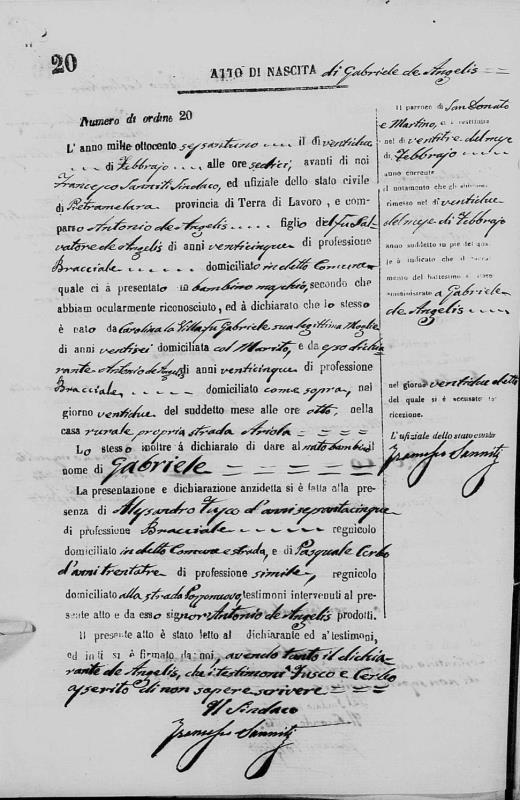 20
ATTO DI NASCITA di Gabriele de Angelis
Numero di ordine 20
L' anno mille ottocento sessantuno il di ventidue
di Febbrajo alle ore sedici, avanti di noi
Francesco Sanniti Sindaco, ed ufiziale dello stato civile
di Pietramelara provincia di Terra di Lavoro, e com-
parso Antonio de Angelis figlio del fu Sal-
vatore de Angelis di anni venticinque di professione
Bracciale domiciliato in detto Comune
quale ci à presentato un bambino maschio, secondo che
abbiam ocularmente riconosciuto, ed à dichiarato che lo stesso
è nato da Carolina la Villa fu Gabriele sua legittima Moglie
di anni ventisei domiciliata col Marito, e da esso dichia
rante Antonio de Angelis di anni venticinque di professione
Bracciale domiciliato come sopra, nel
giorno ventidue del suddetto mese alle ore otto, nella
casa rurale propria strada Ariola
Lo stesso inoltre à dichiarato di dare al nato bambino il
nome di Gabriele
La presentazione e dichiarazione anzidetta si è fatta alla pre-
senza di Alessandro Fusco d'anni sessantacinque
di professione Bracciale regnicolo
domiciliato in detto Comune e strada, e di Pasquale Cerbo
d'anni trentatre di professione simile, regnicolo
domiciliato alla strada testimoni intervenuti al pre-
sente atto e da esso signor Antonio de Angelis prodotti.
Il presente atto è stato letto al dichiarante ed a' testimoni,
ed indi si è firmato da noi, avendo tanto il dichia-
rante de Angelis, da i testimoni Fusco e Cerbo
asserito di non sapere scrivere
Il Sindaco
Francesco Sanniti
Il parroco di San Donato
e Martino, ci à restituito
nel di ventitre del mese
di Febbrajo
anno corrente
il notamento che gli abbiamo
rimesso nel di ventidue
del mese di Febbrajo
anno suddetto in piè del qua-
le à indicato che il sacra-
mento del battesimo è stato
amministrato a Gabriele
de Angelis
nel giorno ventidue detto
del quale si è accusato la
ricezione.
L' ufiziale dello stato civile
Francesco Sanniti